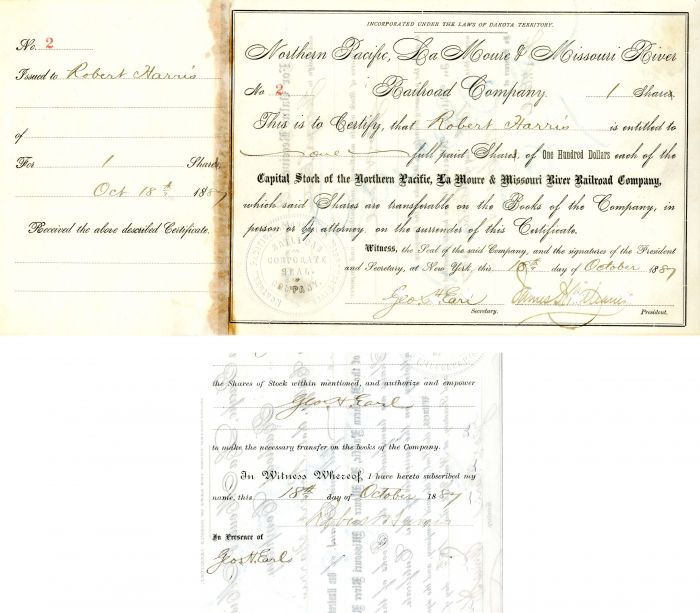 No. 2
Issued to Robert Harris
of
For 1 Share
Oct 18th 1887
Received the above described Certificate.
INCORPORATED UNDER THE LAWS OF DAKOTA TERRITORY.
Northern Pacific, La Moure & Missouri River
No 2 Railroad Company. 1 Share
This is to Certify, that Robert Harris is entitled to
one full paid Share, of One Hundred Dollars each of the
Capital Stock of the Northern Pacific, La Moure & Missouri River Railroad Company,
which said Shares are transferable on the Books of the Company, in
person or by attorney, on the surrender of this Certificate.
Witness, the Seal of the said Company, and the signatures of the President
and Secretary, at New York, this 18th day of October 1887
RAILROAD
CORPORATE
SEAL
COMPANY
Geo H Earl
Secretary. President.
the Shares of Stock within mentioned, and authorize and empower
Geo. H. Earl
to make the necessary transfer on the books of the Company.
In Witness Whereof, I have hereto subscribed my
name, this 18th day of October 1887
Robert Harris
In Presence of
Geo H. Earl